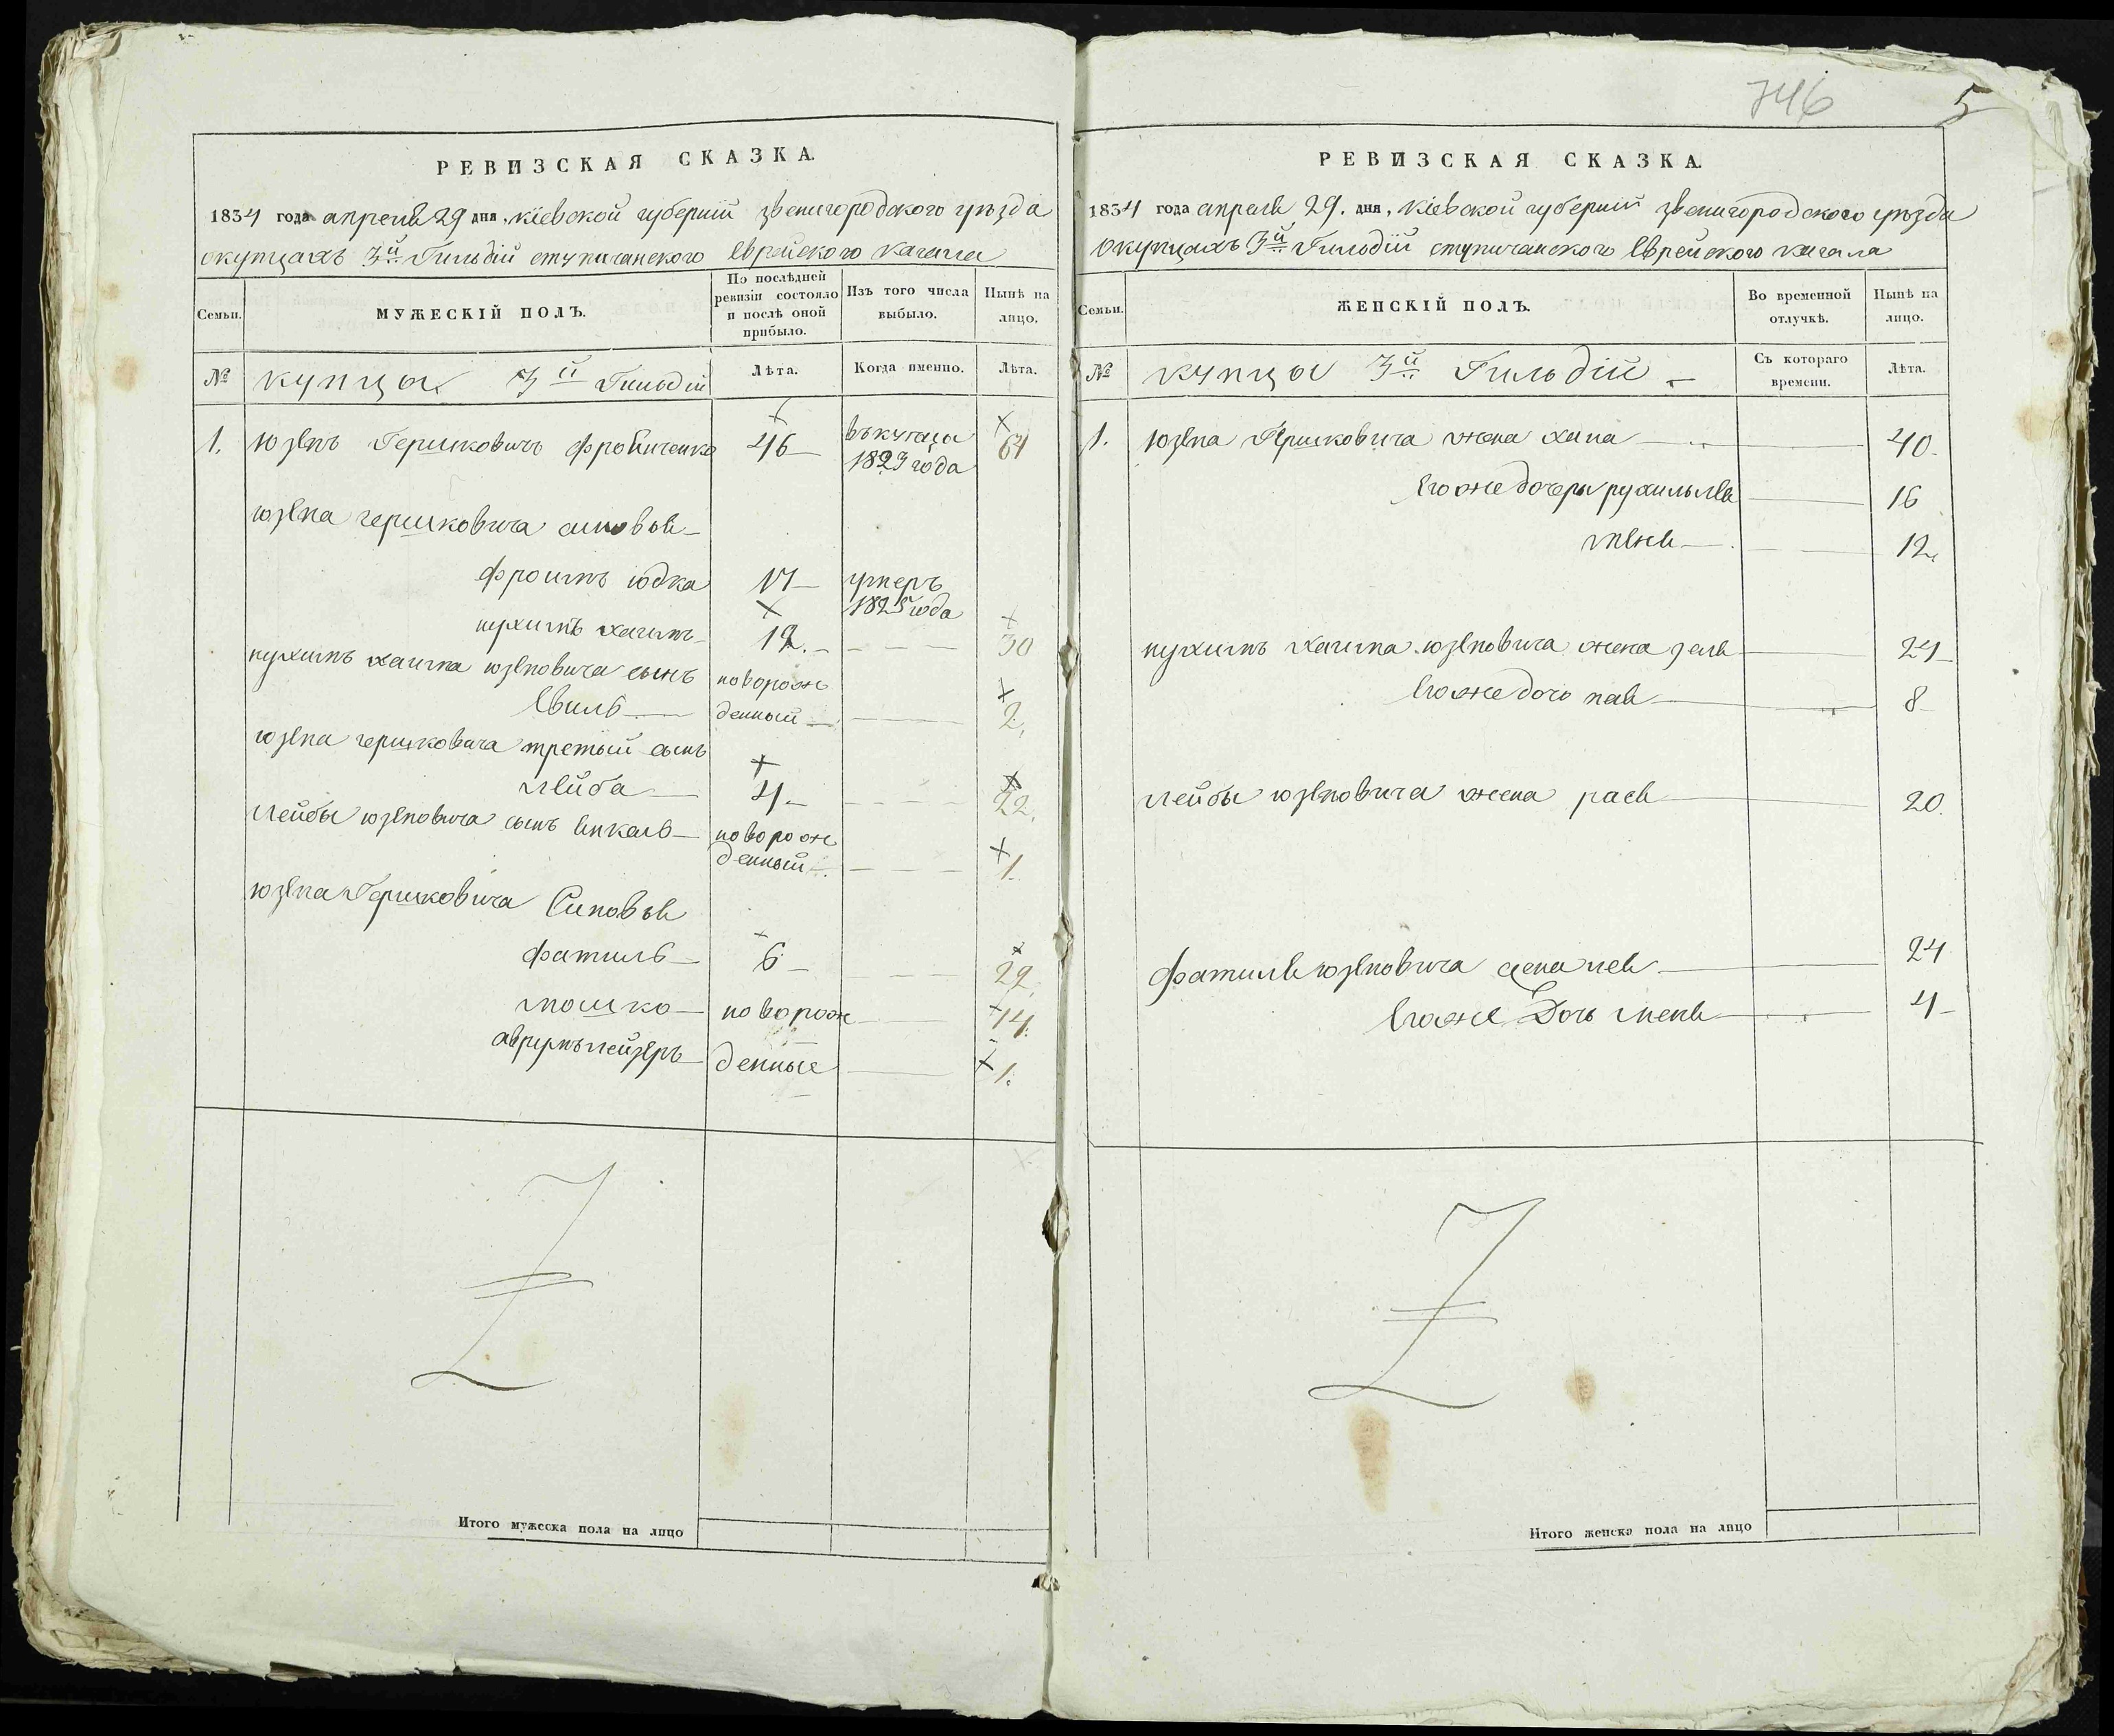 746
5
РЕВИЗСКАЯ СКАЗКА.
1834 года апреля 29 дня, кіевской губерніи звенигородского уѣзда
окупцахъ 3й Гильдіи ступичанского Еврейского кагала
Семьи.
МУЖЕСКІЙ ПОЛЪ.
По послѣдней ревизіи состояло и послѣ оной прибыло.
Изъ того числа выбыло.
Нынѣ на лицо.
№
купцы 3й Гильдіи
Лѣта.
Когда именно.
Лѣта.
1. юзепъ Гершковичъ 46 вкупца 64
1823 года
юзепа гершковича сыновья
фроимъ юдка 17 умеръ
1825 года
нухимъ хаимъ 12. 30
нухимъ хаима юзеповича сынъ новорож
денный 2.
юзепа гершковича третьій сынъ
Лейба 4 22.
Лейбы юзеповича сынъ новорож
денный 1.
юзепа Гершковича Синовья
фатиль 6 22.
мошко новорож 14.
аврумъ лейзеръ денные 1.
Итого мужеска пола на лицо
РЕВИЗСКАЯ СКАЗКА.
1834 года апреля 29. дня, Кіевской губерніи звенигородского уѣзда
Окупцахъ 3й Гильдіи ступичанского Еврейского кагала
Семьи.
ЖЕНСКІЙ ПОЛЪ.
Во временной отлучкѣ.
Нынѣ на лицо.
№
купцы 3й Гильдіи
Съ котораго времени.
Лѣта.
1. юзепа Гершковича жена хана 40.
Егоже дочеры 16
12.
нухимъ хаима юзеповича жена 24
Егоже дочь 8
Лейбы юзеповича жена рася 20.
Фатиля юзеповича жена лея 24
Егоже Дочь 4
Итого женска пола на лицо